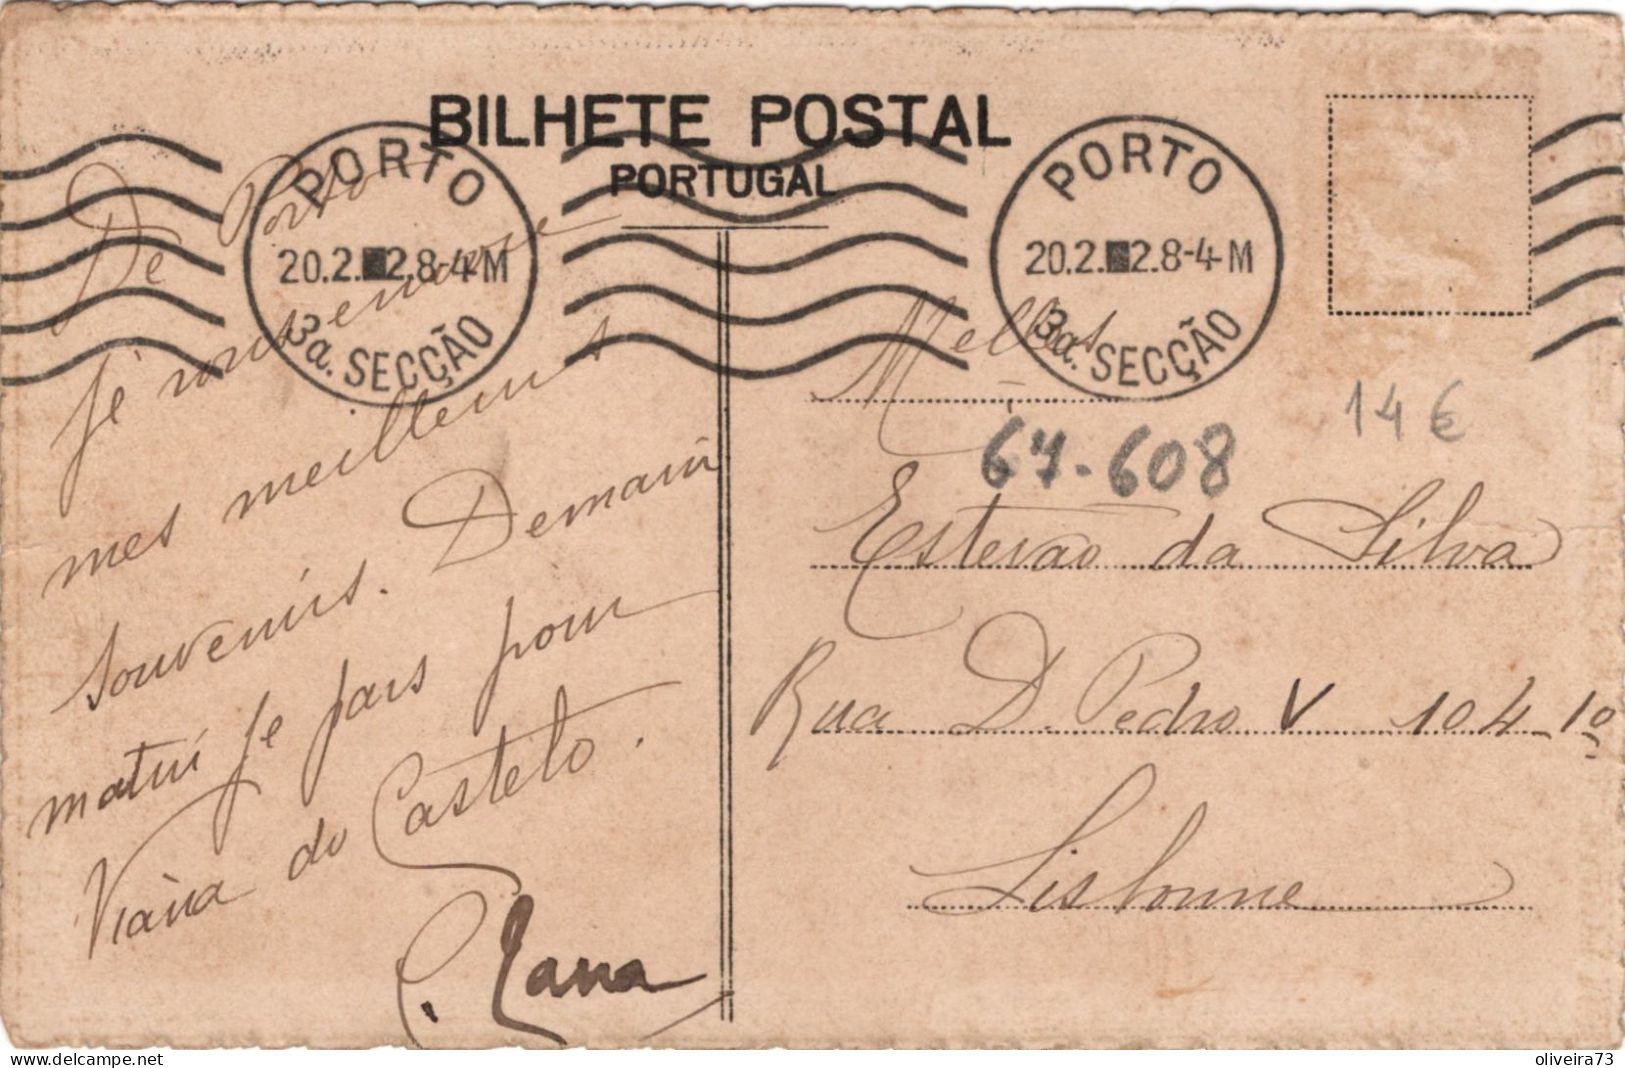 BILHETE POSTAL
PORTUGAL
PORTO
20.2. 2.8-4-M
3a. SECÇÃO
PORTO
20.2. 2.8-4-M
3a. SECÇÃO
De Porto
Je vous envoie
mes meilleurs
souvenirs. Demain
matin je pars pour
Viana do Castelo.
14 €
67-608
Estevao da Silva
Rua D. Pedro V 104-1º
Lisbonne
oliveira73